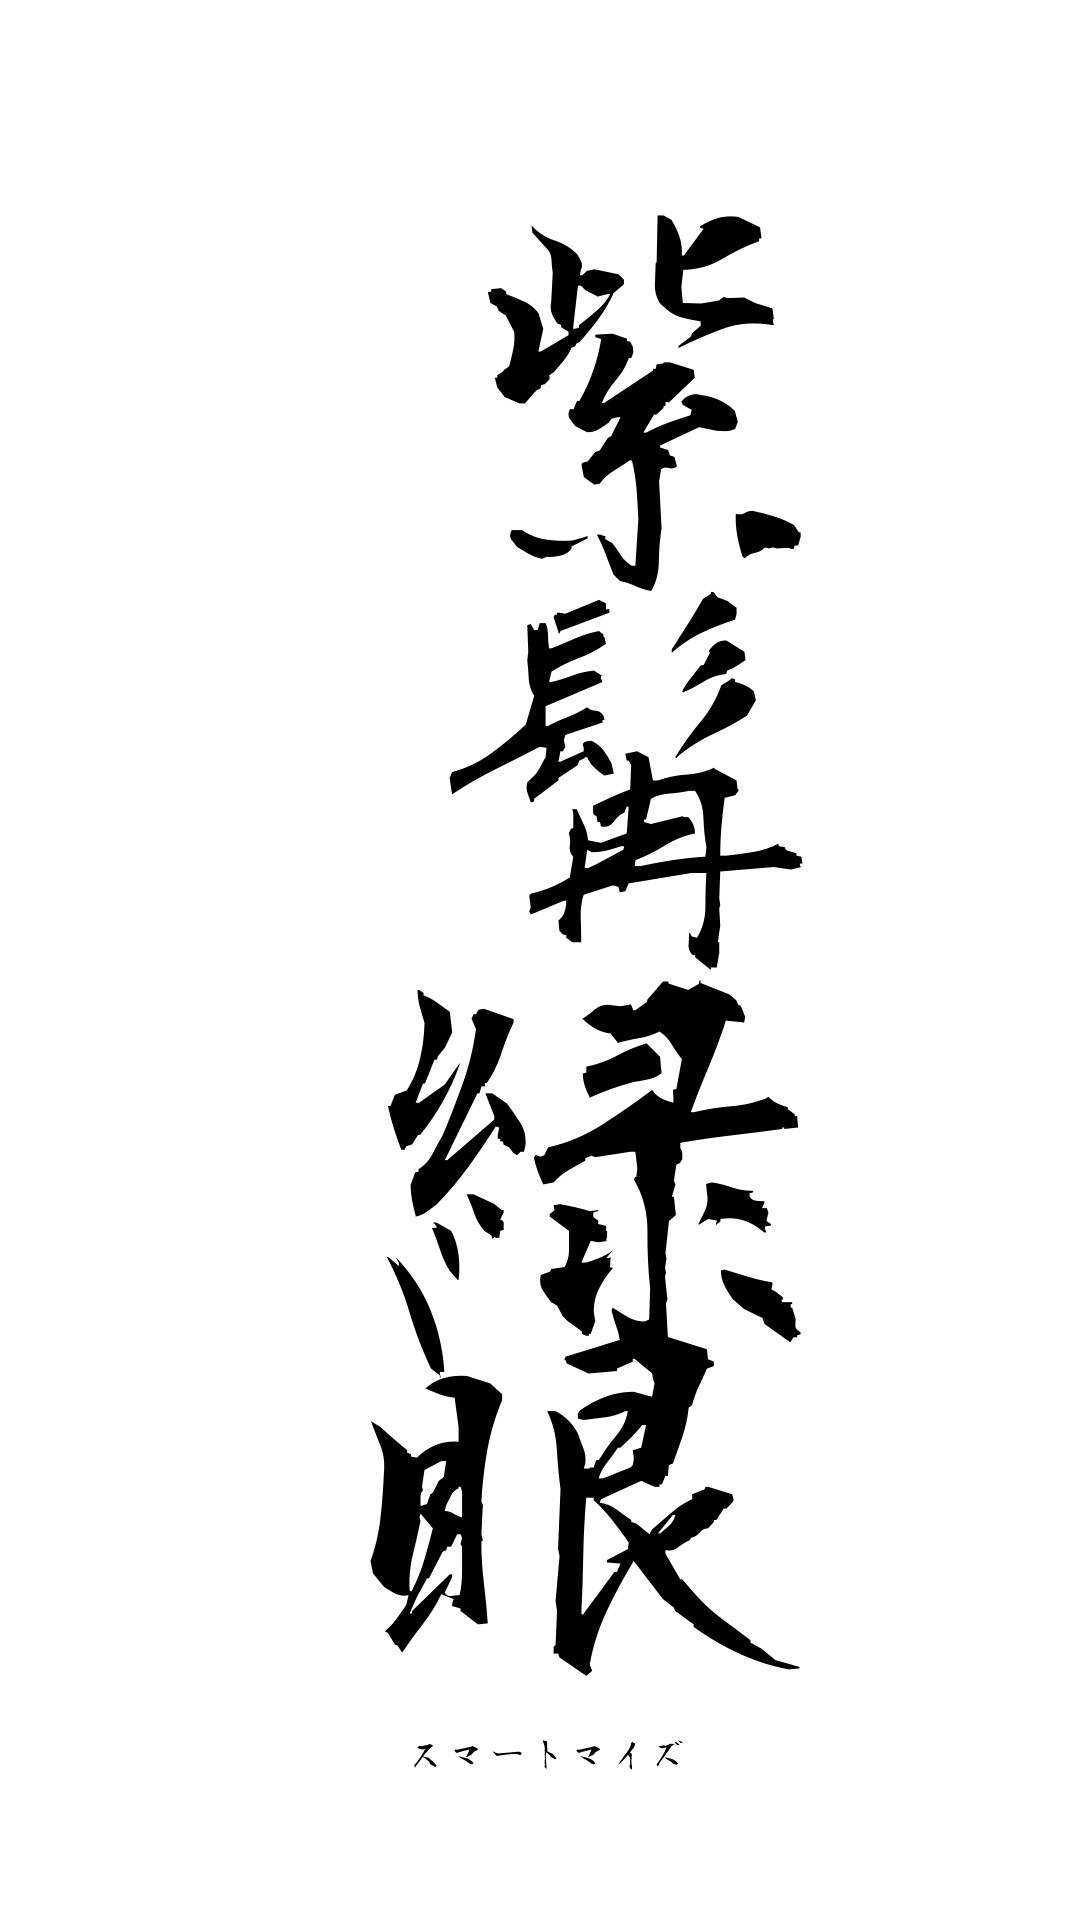 紫髯緑眼
スマートマイズ